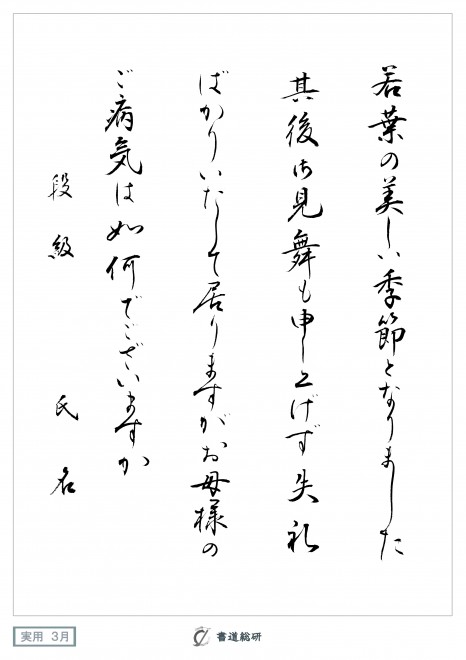 若葉の美しい季節となりました
其後御見舞も申し上げず失礼
ばかりいたして居りますがお母様の
ご病気は如何でございますか
段級 氏名
実用 3月
書道総研